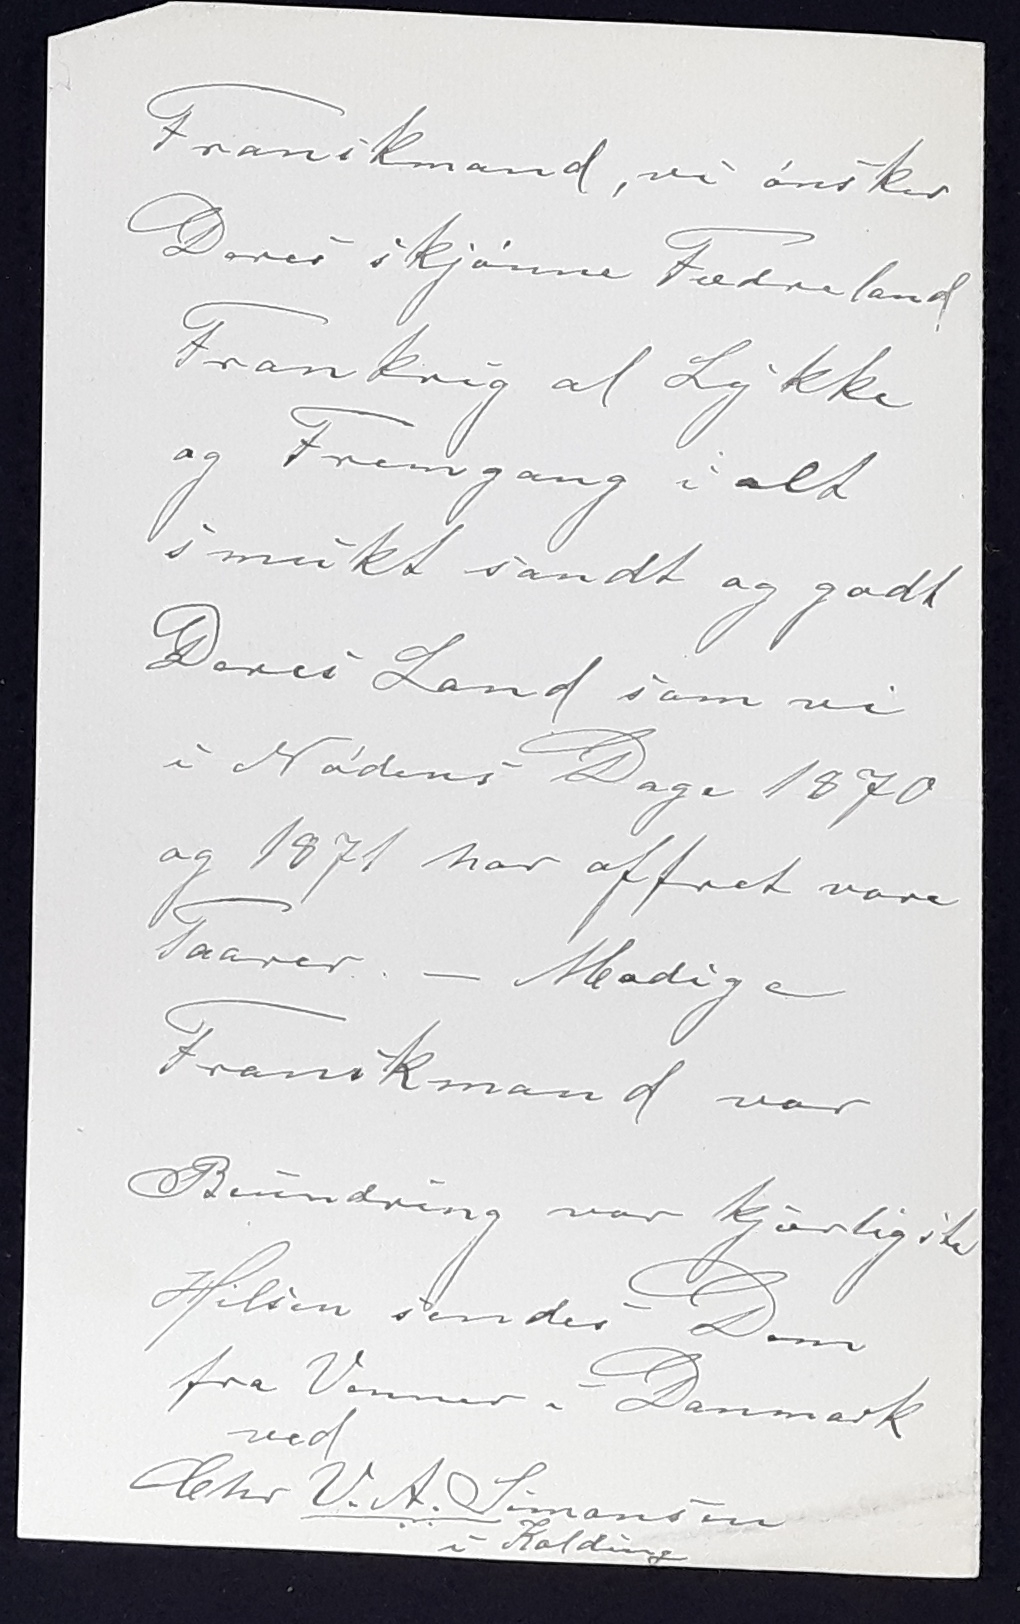 Franskmand, vi ønsker
Deres skjønne Fædreland
Frankrig al Lykke
og Fremgang i alt
smukt sandt og godt
Deres Land som vi
i Nødens Dage 1870
og 1871 har offret vore
Taarer. — Modige
Franskmand vor
Beundring vor kjærligste
Hilsen sendes Dem
fra Venner i Danmark
ved
Chr V. A. Simonsen
i Kolding